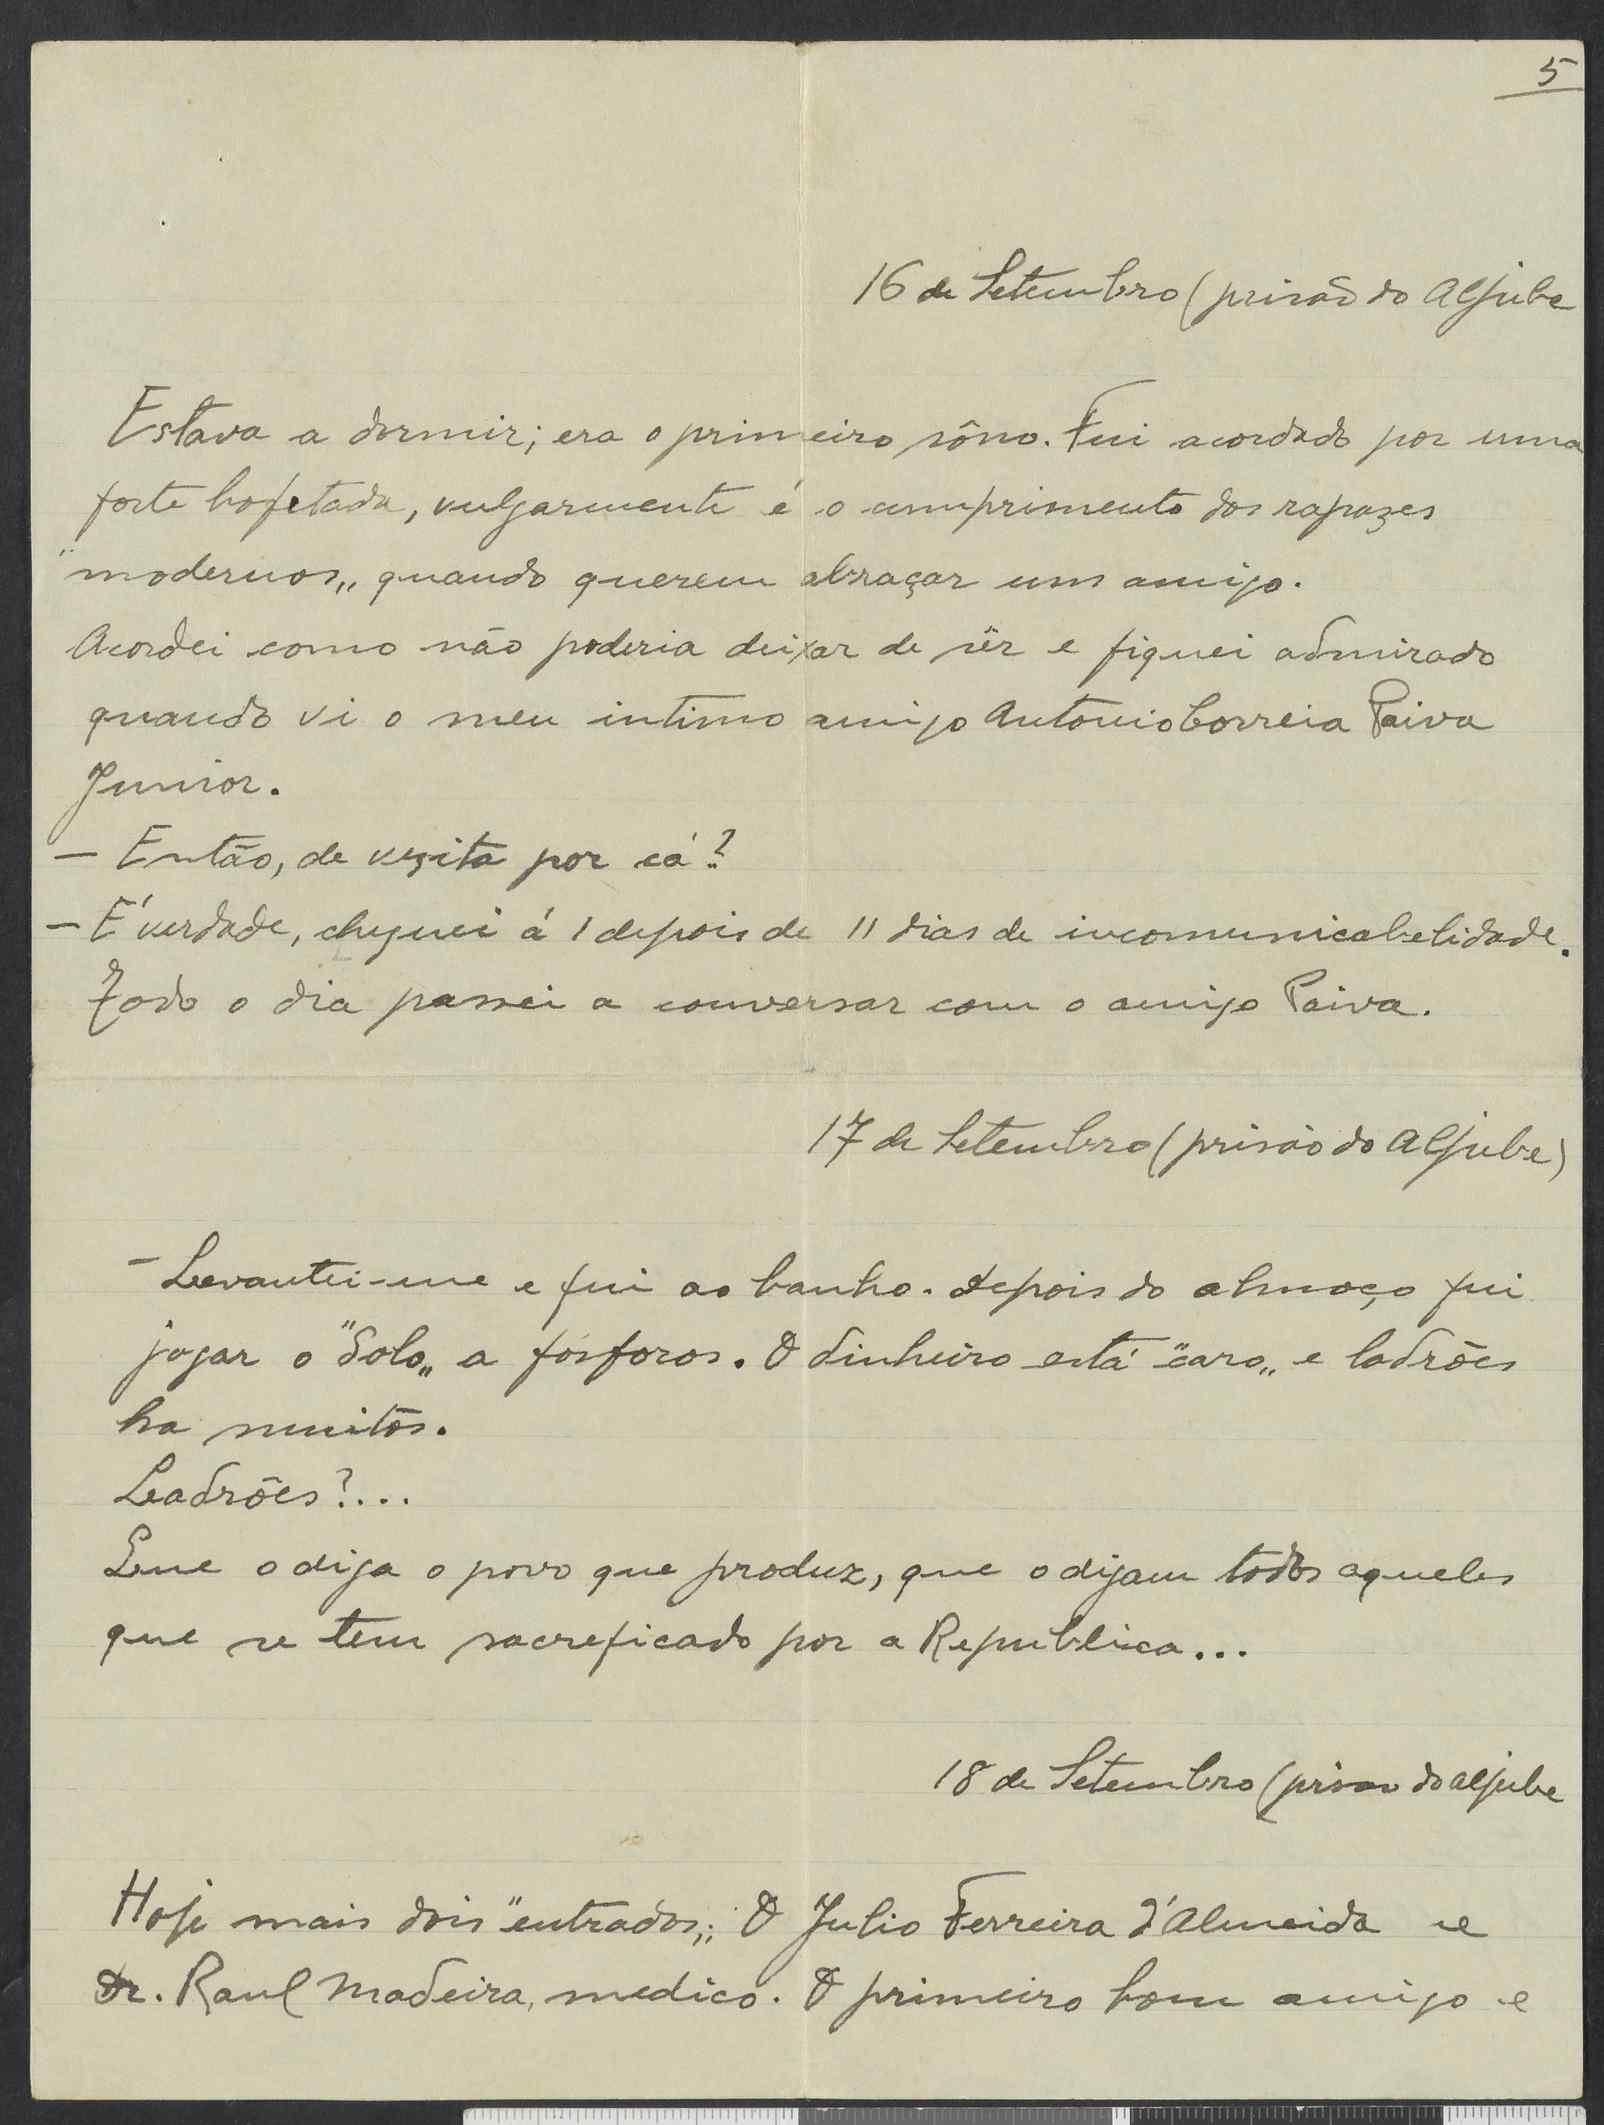 5
16 de Setembro (prisão do Aljube
Estava a dormir; era o primeiro sôno. Fui acordado por uma
forte bofetada, vulgarmente é o cumprimento dos rapazes
"modernos„ quando querem abraçar um amigo.
Acordei como não poderia deixar de sêr e fiquei admirado
quando vi o meu intimo amigo Antonio Correia Paiva
Junior.
— Então, de vezita por cá?
— É verdade, cheguei á 1 depois de 11 dias de incomunicabelidade.
Todo o dia passei a conversar com o amigo Paiva.
17 de Setembro (prisão do Aljube)
- Levantei-me e fui ao banho. Depois do almoço fui
jogar o "Solo„ a fósforos. O dinheiro está "caro„ e ladrões
ha muitos.
Ladrões?...
Que o diga o povo que produz, que o digam todos aqueles
que se tem sacreficado por a Republica...
18 de Setembro (prisao do Aljube
Hoje mais dois "entrados„: O Julio Ferreira d'Almeida e
Dr. Raul Madeira, medico. O primeiro bom amigo e